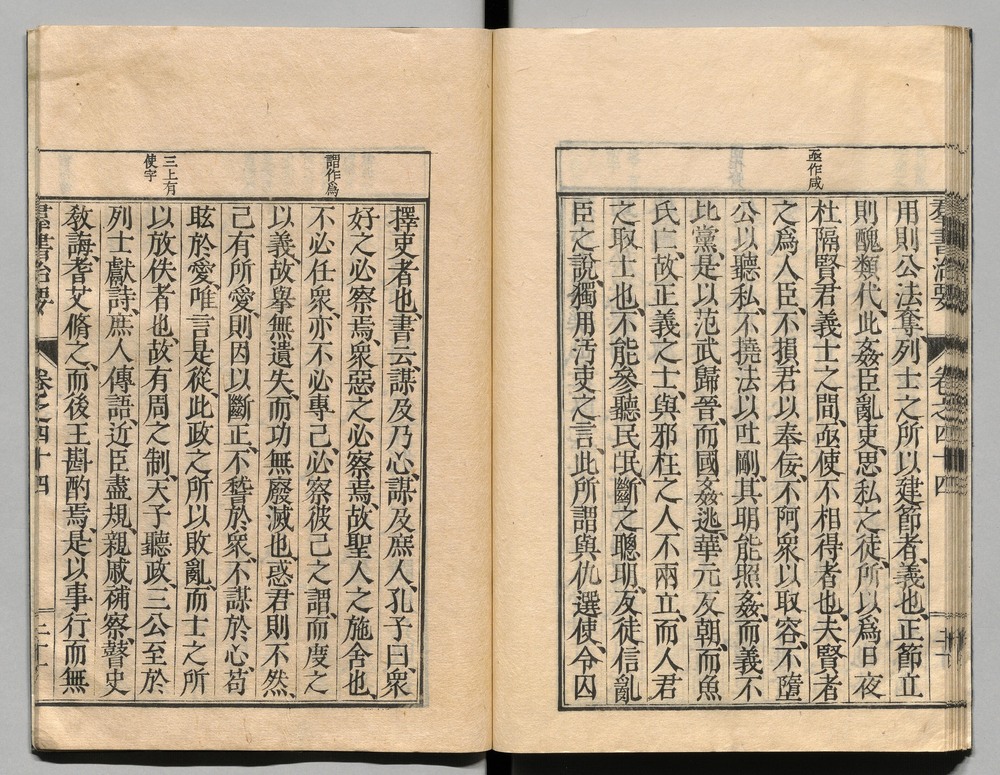 亟作咸
用則公法奪、列士之所以建節者、義也、正節立
則醜類代、此姦臣亂吏、思私之徒、所以爲日夜
杜隔賢君義士之間、亟使不相得者也、夫賢者
之爲人臣、不損君以奉佞、不阿衆以取容、不墮
公以聽私、不撓法以吐剛、其明能照姦、而義不
比黨、是以范武歸晉、而國姦逃、華元反朝、而魚
氏亡、故正義之士、與邪枉之人不兩立、而人君
之取士也、不能參聽民氓、斷之聰明、反徒信亂
臣之說、獨用汚吏之言、此所謂與仇選使、令囚
謂作爲
三上有
使字
擇吏者也、書云、謀及乃心、謀及庶人、孔子曰、衆
好之必察焉、衆惡之必察焉、故聖人之施舍也、
不必任衆、亦不必專己、必察彼己之謂、而度之
以義、故擧無遺失、而功無廢滅也、惑君則不然、
己有所愛、則因以斷正、不稽於衆、不謀於心、苟
眩於愛、唯言是從、此政之所以敗亂、而士之所
以放佚者也、故有周之制、天子聽政、三公至於
列士獻詩、庶人傳語、近臣盡規、親戚補察、瞽史
敎誨、耆艾脩之、而後王斟酌焉、是以事行而無
群書治要 卷之四十四